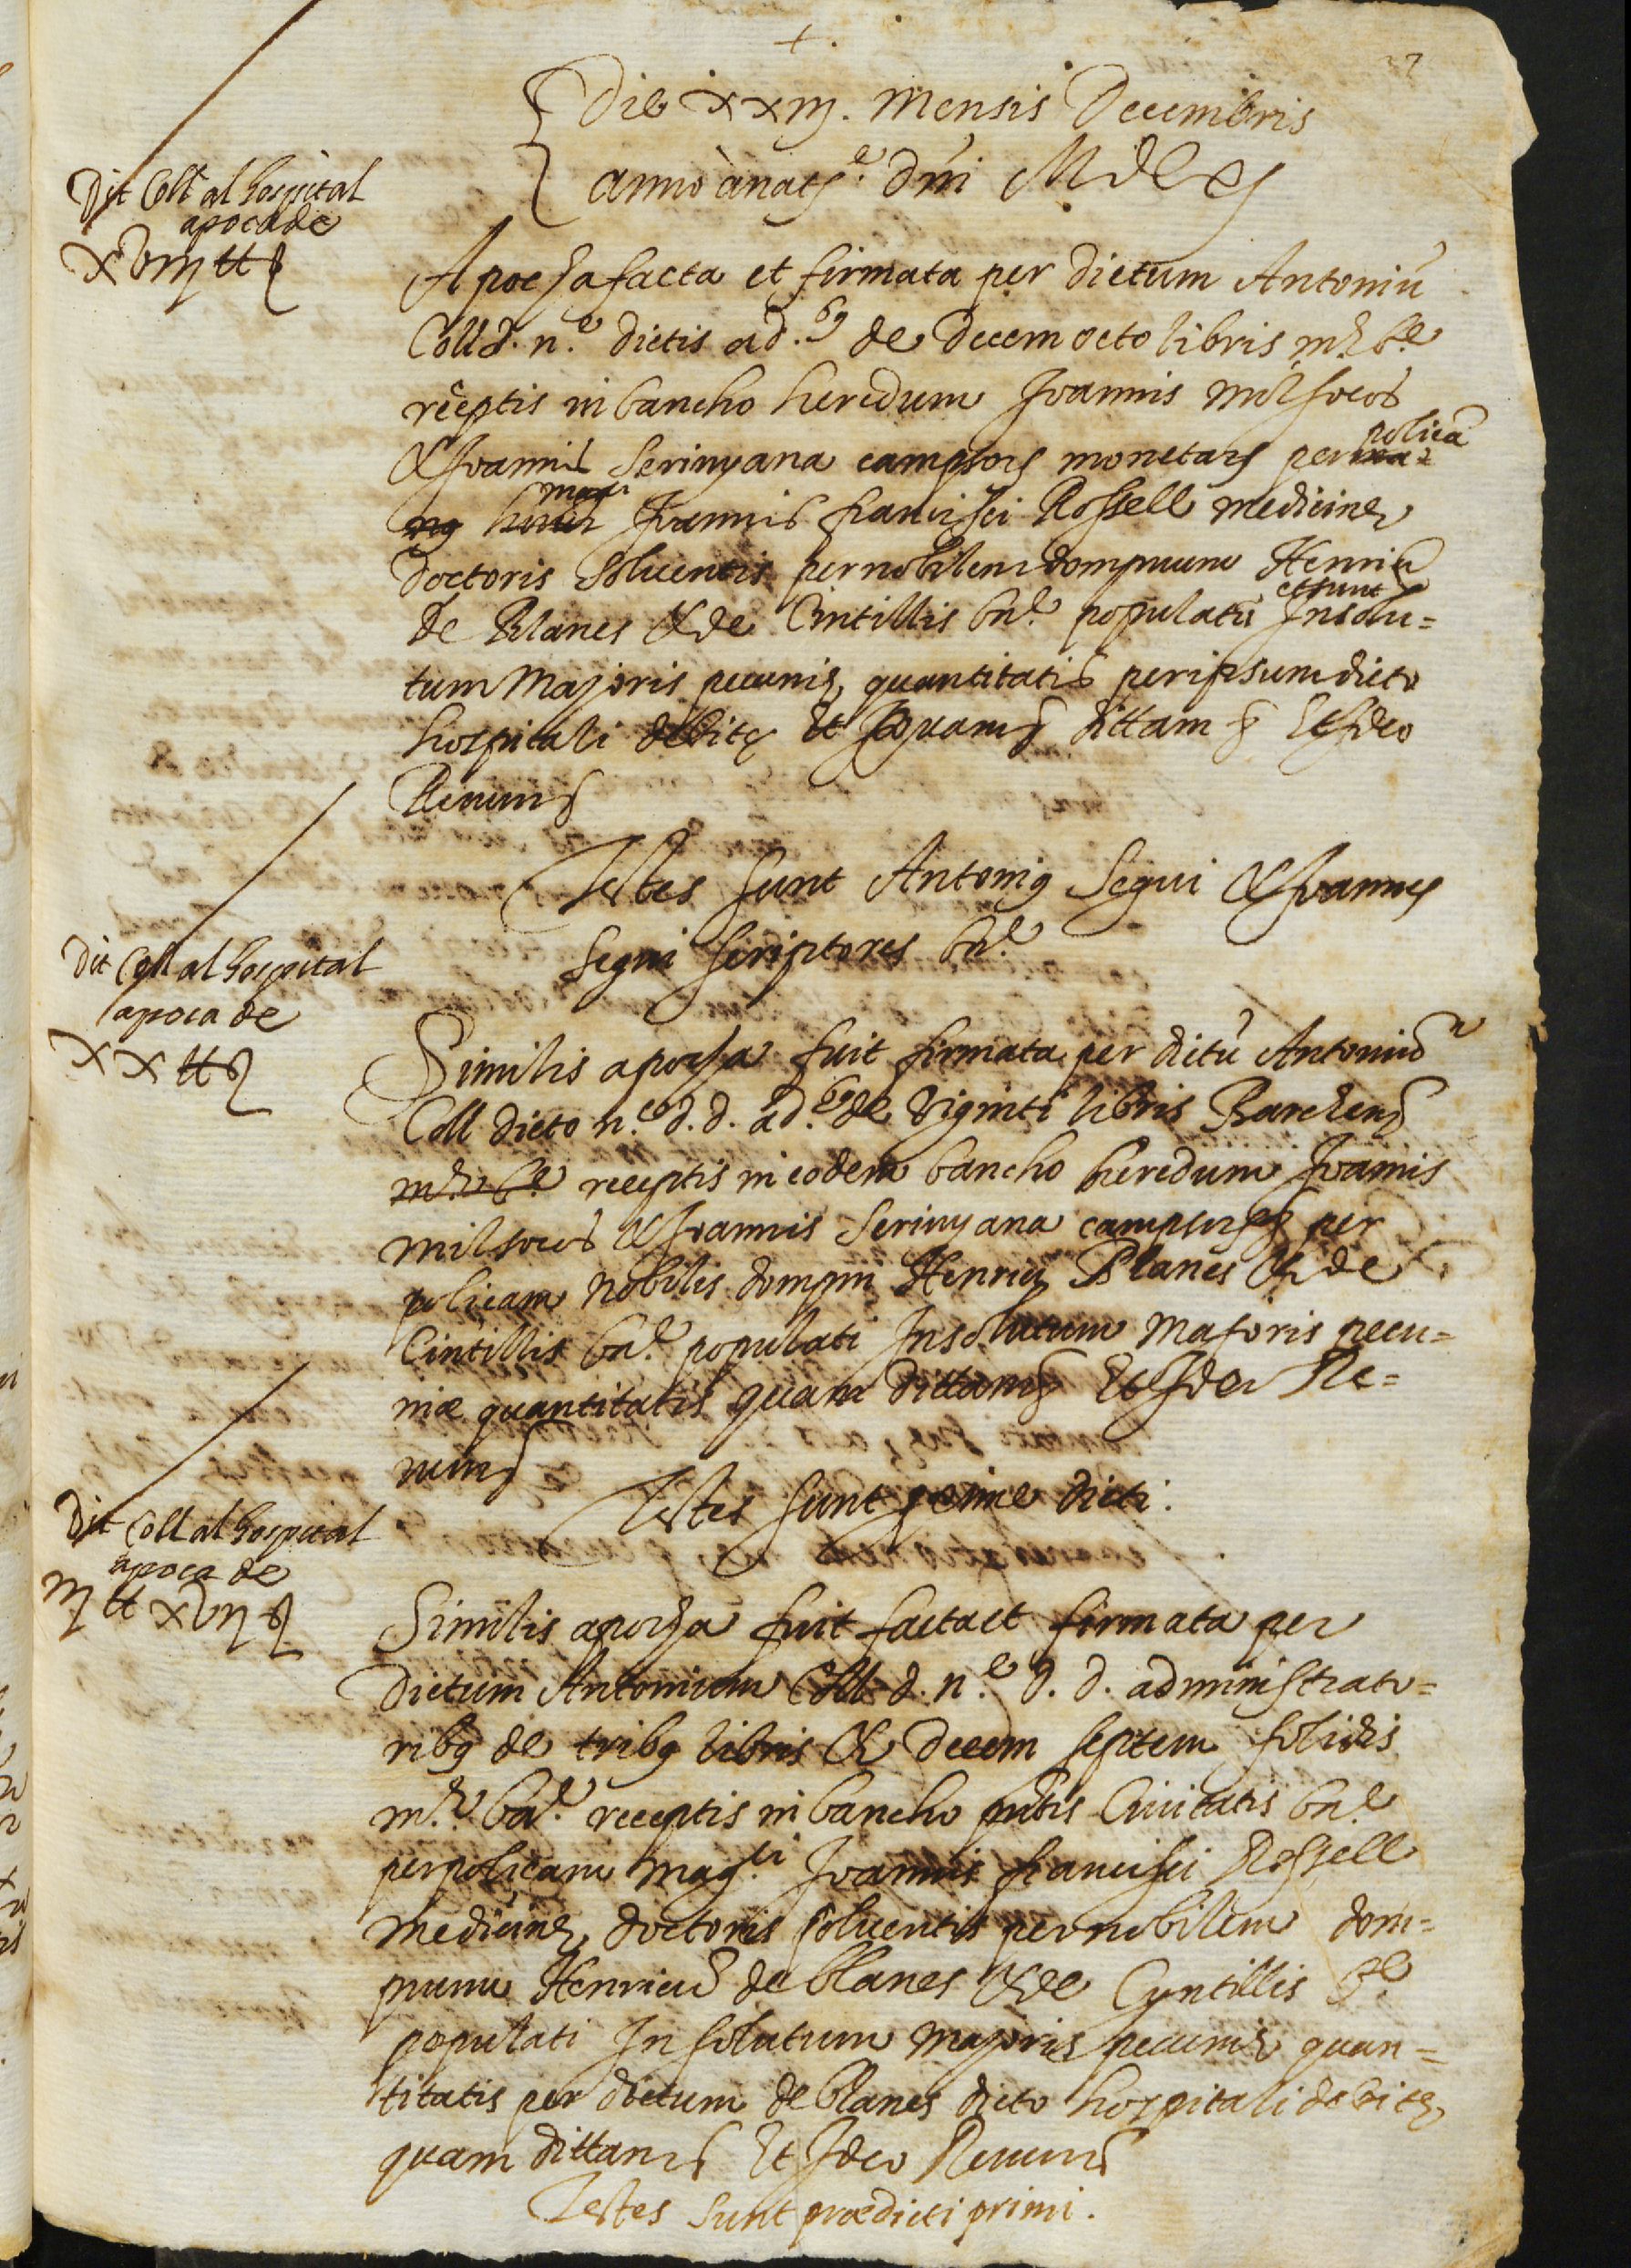 +.
37
Die xxiij. mensis Decembris
anno à natte. dni MDC
Dit Coll al hospital
apoca de
xviij ll s
Apocha facta et firmata per dictum Antoniũ
Coll d. n.e dictis ad.bꝰ de decem octo libris m.e b.e
reeptis in bancho heredum Joannis milsocos
& Joannis Serinyana campsorꝭ monetarꝭ per policã
magci Joannis francisci Rossell medicinę
doctoris solventis per nobilem dompnum Henricũ
de Blanes & de Cintillis bne. populatũ et sunt Insolu=
tum Majoris pecunię quantitatis per ipsum dicto
hospitali debitę Et quam dittam Et Ideo
Renuns
Testes sunt Antoniꝰ Segui & Joannes
Segui scriptores bne.
Dit Coll al hospital
apoca de
xx ll s
Similis apocha fuit firmata per dictũ Antoniũ
Coll dicto n.e d. d. ad.bꝰ de viginti libris Barchens
receptis in eodem bancho heredum Joannis
milsocos & Joannis Serinyana campsorꝭ per
policam Nobilis dompni Henrici Blanes & de
Cintillis bne. populati Insolutum Majoris pecu=
niæ quantitatis quam dittam Et Ideo Re=
nuns
Testes sunt proxime dicti.
Dit Coll al hospital
apoca de
iij ll xvij s
Similis apocha fuit facta et firmata per
dictum Antonium Coll d. n.e d. d. administrato=
ribꝰ de tribꝰ libris & decem septem solidis
m.e bne. receptis in bancho pntis Civitatis bne
per policam mag.ci Joannis francisci Rossell
medicinę doctoris solventis per nobilem dom=
pnum Henricũ de blanes & de Cyntillis B.e
populati In solutum majoris pecunię quan=
titatis per dictum de blanes dicto hospitali debitę
quam dittam Et Ideo Renuns
Testes sunt prædicti primi.